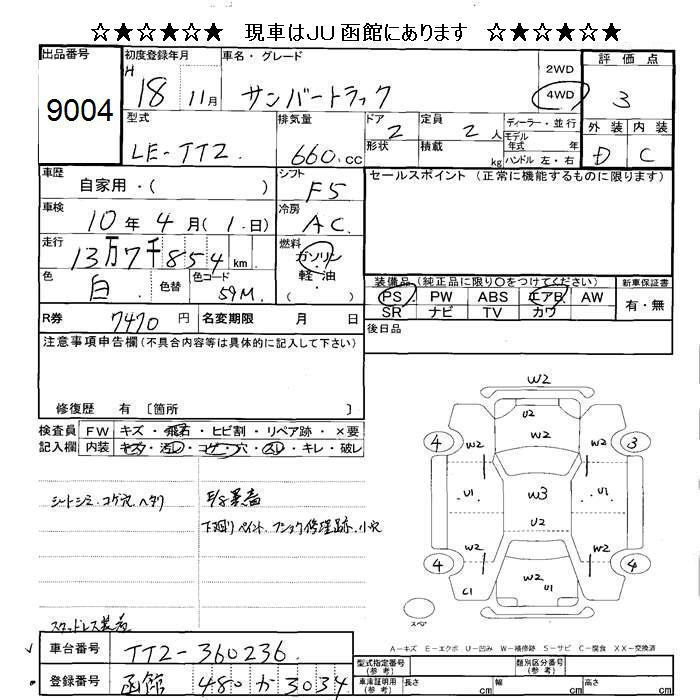 ☆★☆★☆★ 現車はJU函館にあります ☆★☆★☆★
出品番号 9004
初度登録年月 H 18 11月
車名・グレード サンバートラック
2WD
4WD
評価点 3
型式 LE-TT2
排気量 660.cc
ドア 2
形状
定員 2人
積載 kg
ディーラー・並行
モデル年式 年
ハンドル 左・右
外装 D
内装 C
車歴 自家用・( )
シフト F5
セールスポイント(正常に機能するものに限ります)
車検 10年4月(1.日)
冷房 AC
走行 13万7千854km
燃料 ガソリン 軽・油 ( )
色 白 色替 色コード 59M
装備品(純正品に限り○をつけてください)
PS PW ABS エアB AW
SR ナビ TV カワ
新車保証書 有・無
R券 7470円
名変期限 月 日
後日品
注意事項申告欄(不具合内容等は具体的に記入して下さい)
修復歴 有 〔箇所 〕
検査員記入欄
FW キズ・飛石・ヒビ割・リペア跡・×要
内装 キズ・汚レ・コゲ・穴・スレ・キレ・破レ
シートシミ.コゲ穴.ヘタリ
E/g異音
下廻りペイント.フショク修理跡.小穴
スタッドレス装着
W2
U2
W2
4 W2 W2 3
U1 W3 U1
U2
4 W2 W2 4
C1 W2 U1
スペア
A-キズ E-エクボ U-凹み W-補修跡 S-サビ C-腐食 XX-交換済
車台番号 TT2-360236
登録番号 函館 480か3034
型式指定番号(参考)
類別区分番号(参考)
車庫証明用(参考) 長さ cm 幅 cm 高さ cm